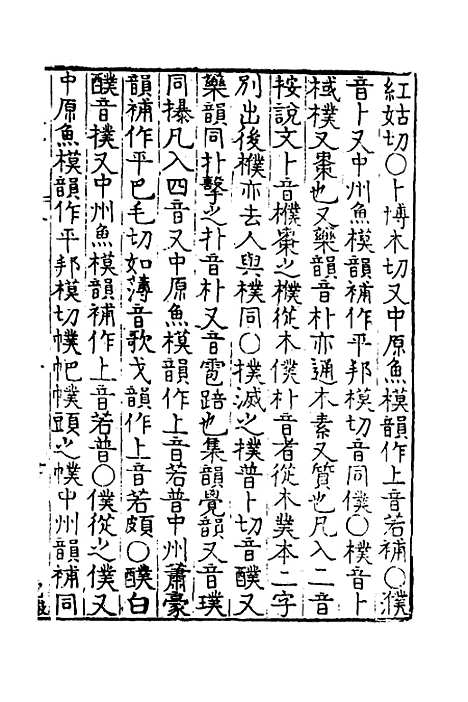 紅姑切○卜博木切又中原魚模韻作上音若補○濮
音卜又中州魚模韻補作平邦模切音同僕○樸音卜
棫樸又棗也又藥韻音朴亦通木素又質也凡入二音
按說文卜音樕棗之樸從木僕朴音者從木菐本二字
別出後樸亦去人與樸同○撲滅之撲普卜切音醭又
藥韻同扑擊之扑音朴又音雹踣也集韻覺韻又音璞
同㩧凡入四音又中原魚模韻作上音若普中州蕭豪
韻補作平巴毛切如薄音歌戈韻作上音若頗○醭白
醭音撲又中州魚模韻補作上音若普○僕從之僕又
中原魚模韻作平邦模切幞帊幞頭之幞中州韻補同